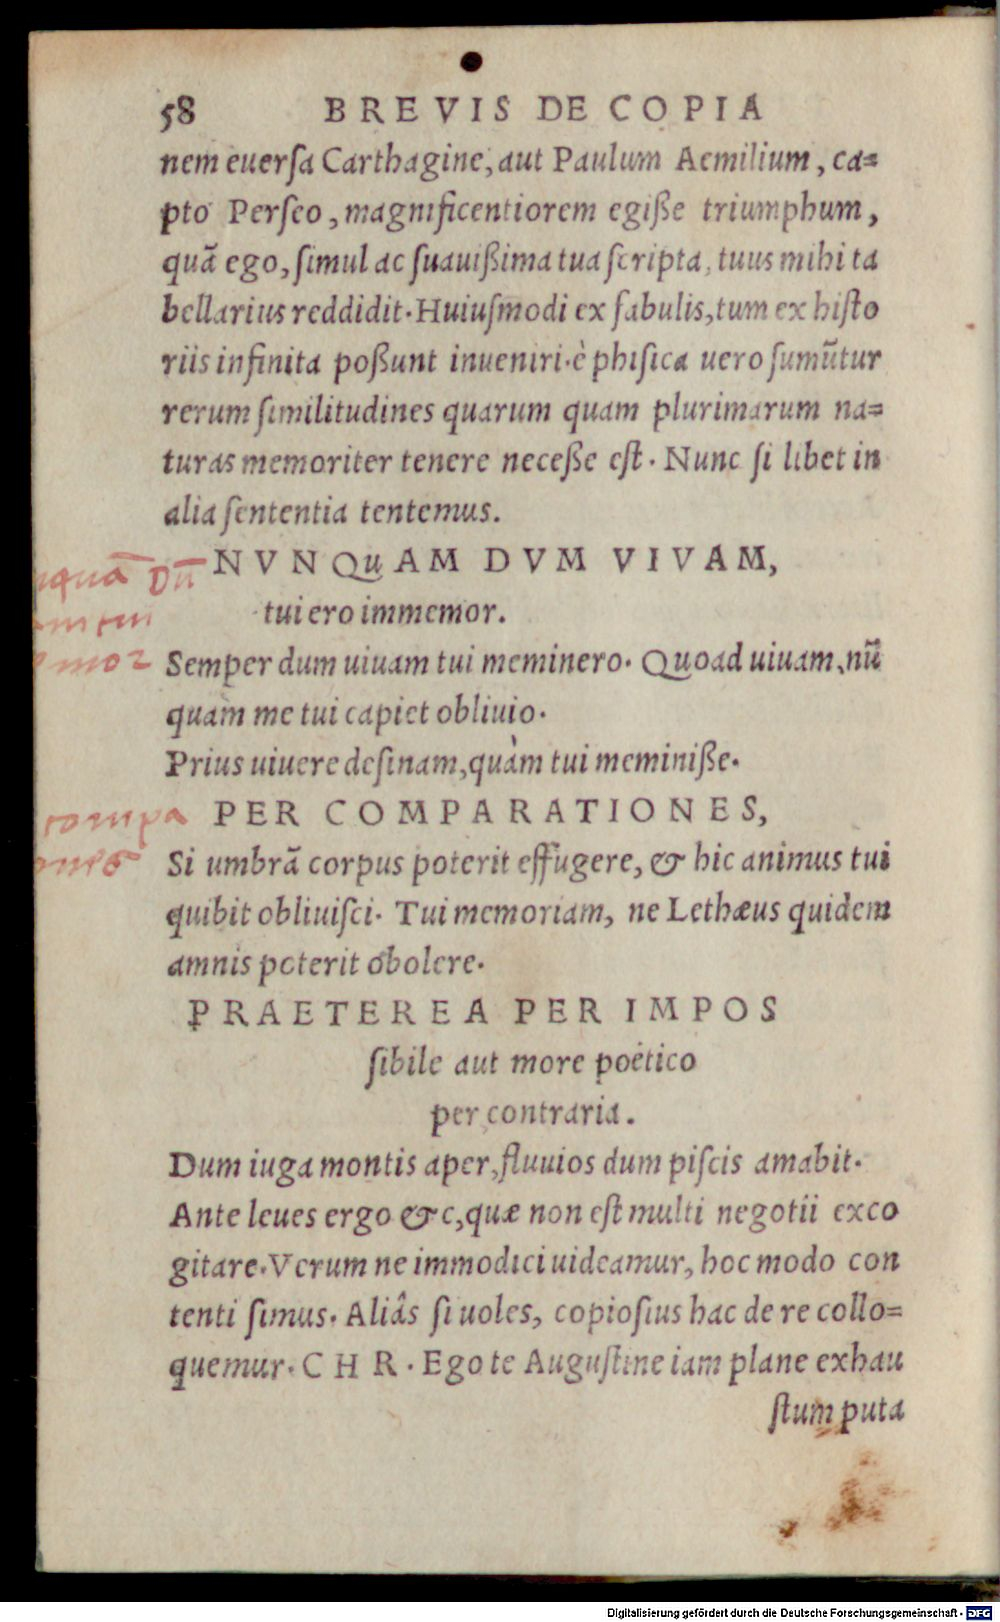 58 BREVIS DE COPIA
nem euerſa Carthagine, aut Paulum Aemilium, ca=
pto Perſeo, magnificentiorem egiße triumphum,
quā ego, ſimul ac ſuauißima tua ſcripta, tuus mihi ta
bellarius reddidit. Huiuſmodi ex fabulis, tum ex hiſto
riis infinita poßunt inueniri. è phiſica uero ſumūtur
rerum ſimilitudines quarum quam plurimarum na=
turas memoriter tenere neceße eſt. Nunc ſi libet in
alia ſententia tentemus.
NVNQuAM DVM VIVAM,
tui ero immemor.
Semper dum uiuam tui meminero. Quoad uiuam, nū
quam me tui capiet obliuio.
Prius uiuere deſinam, quàm tui meminiße.
PER COMPARATIONES,
Si umbrā corpus poterit effugere, & hic animus tui
quibit obliuiſci. Tui memoriam, ne Lethæus quidem
amnis poterit obolere.
PRAETEREA PER IMPOS
ſibile aut more poëtico
per contraria.
Dum iuga montis aper, fluuios dum piſcis amabit.
Ante leues ergo &c, quæ non eſt multi negotii exco
gitare. Verum ne immodici uideamur, hoc modo con
tenti ſimus. Aliâs ſi uoles, copioſius hac de re collo=
quemur. CHR. Ego te Auguſtine iam plane exhau
ſtum puta
quā Dū
tui
mor
compa
ones
Digitalisierung gefördert durch die Deutsche Forschungsgemeinschaft - DFG